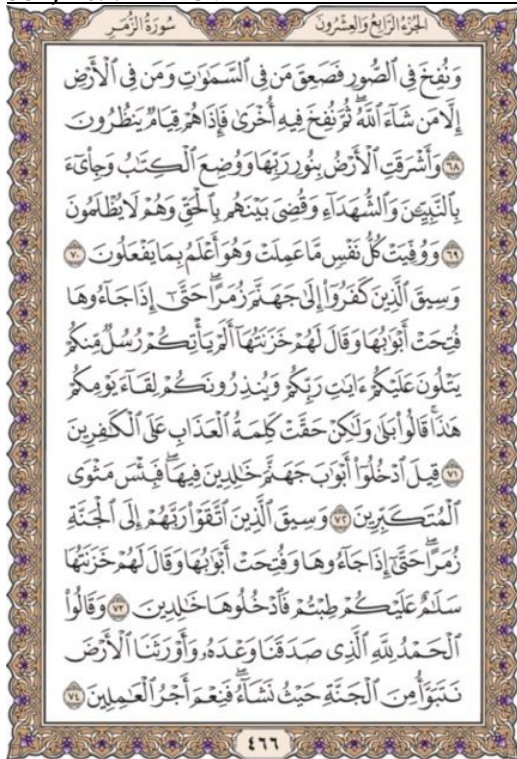 سُورَةُ الزُّمَرِ
الجُزْءُ الرَّابِعُ وَالعِشْرُونَ
وَنُفِخَ فِي ٱلصُّورِ فَصَعِقَ مَن فِي ٱلسَّمَٰوَٰتِ وَمَن فِي ٱلْأَرْضِ
إِلَّا مَن شَآءَ ٱللَّهُۖ ثُمَّ نُفِخَ فِيهِ أُخْرَىٰ فَإِذَا هُمْ قِيَامٌ يَنظُرُونَ
۝٦٨ وَأَشْرَقَتِ ٱلْأَرْضُ بِنُورِ رَبِّهَا وَوُضِعَ ٱلْكِتَٰبُ وَجِا۟ىٓءَ
بِٱلنَّبِيِّۦنَ وَٱلشُّهَدَآءِ وَقُضِىَ بَيْنَهُم بِٱلْحَقِّ وَهُمْ لَا يُظْلَمُونَ
۝٦٩ وَوُفِّيَتْ كُلُّ نَفْسٍ مَّا عَمِلَتْ وَهُوَ أَعْلَمُ بِمَا يَفْعَلُونَ ۝٧٠
وَسِيقَ ٱلَّذِينَ كَفَرُوٓا۟ إِلَىٰ جَهَنَّمَ زُمَرًاۖ حَتَّىٰٓ إِذَا جَآءُوهَا
فُتِحَتْ أَبْوَٰبُهَا وَقَالَ لَهُمْ خَزَنَتُهَآ أَلَمْ يَأْتِكُمْ رُسُلٌ مِّنكُمْ
يَتْلُونَ عَلَيْكُمْ ءَايَٰتِ رَبِّكُمْ وَيُنذِرُونَكُمْ لِقَآءَ يَوْمِكُمْ
هَٰذَاۚ قَالُوا۟ بَلَىٰ وَلَٰكِنْ حَقَّتْ كَلِمَةُ ٱلْعَذَابِ عَلَى ٱلْكَٰفِرِينَ
۝٧١ قِيلَ ٱدْخُلُوٓا۟ أَبْوَٰبَ جَهَنَّمَ خَٰلِدِينَ فِيهَاۖ فَبِئْسَ مَثْوَى
ٱلْمُتَكَبِّرِينَ ۝٧٢ وَسِيقَ ٱلَّذِينَ ٱتَّقَوْا۟ رَبَّهُمْ إِلَى ٱلْجَنَّةِ
زُمَرًاۖ حَتَّىٰٓ إِذَا جَآءُوهَا وَفُتِحَتْ أَبْوَٰبُهَا وَقَالَ لَهُمْ خَزَنَتُهَا
سَلَٰمٌ عَلَيْكُمْ طِبْتُمْ فَٱدْخُلُوهَا خَٰلِدِينَ ۝٧٣ وَقَالُوا۟
ٱلْحَمْدُ لِلَّهِ ٱلَّذِى صَدَقَنَا وَعْدَهُۥ وَأَوْرَثَنَا ٱلْأَرْضَ
نَتَبَوَّأُ مِنَ ٱلْجَنَّةِ حَيْثُ نَشَآءُۖ فَنِعْمَ أَجْرُ ٱلْعَٰمِلِينَ ۝٧٤
٤٦٦